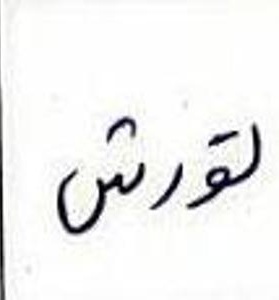 لتورش